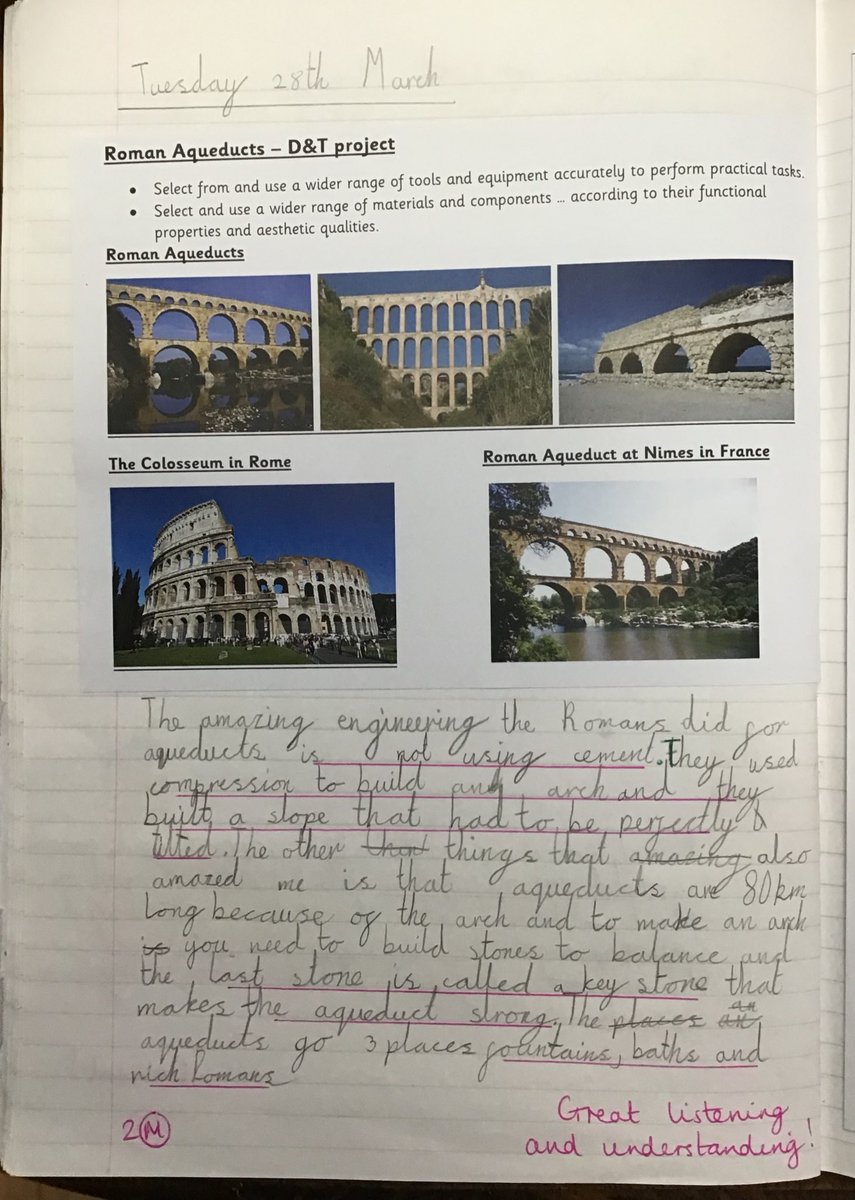 Tuesday 28th March
Roman Aqueducts – D&T project
• Select from and use a wider range of tools and equipment accurately to perform practical tasks.
• Select and use a wider range of materials and components ... according to their functional
properties and aesthetic qualities.
Roman Aqueducts
The Colosseum in Rome
Roman Aqueduct at Nimes in France
The amazing engineering the Romans did for
aqueducts is not using cement. They used
compression to build an arch and they
built a slope that had to be perfectly
tilted. The other things that amazing also
amazed me is that aqueducts are 80km
long because of the arch and to make an arch
is you need to build stones to balance and
the last stone is called a key stone that
makes the aqueduct strong. The places an
aqueducts go 3 places fountains, baths and
rich Romans
2 M
Great listening
and understanding!